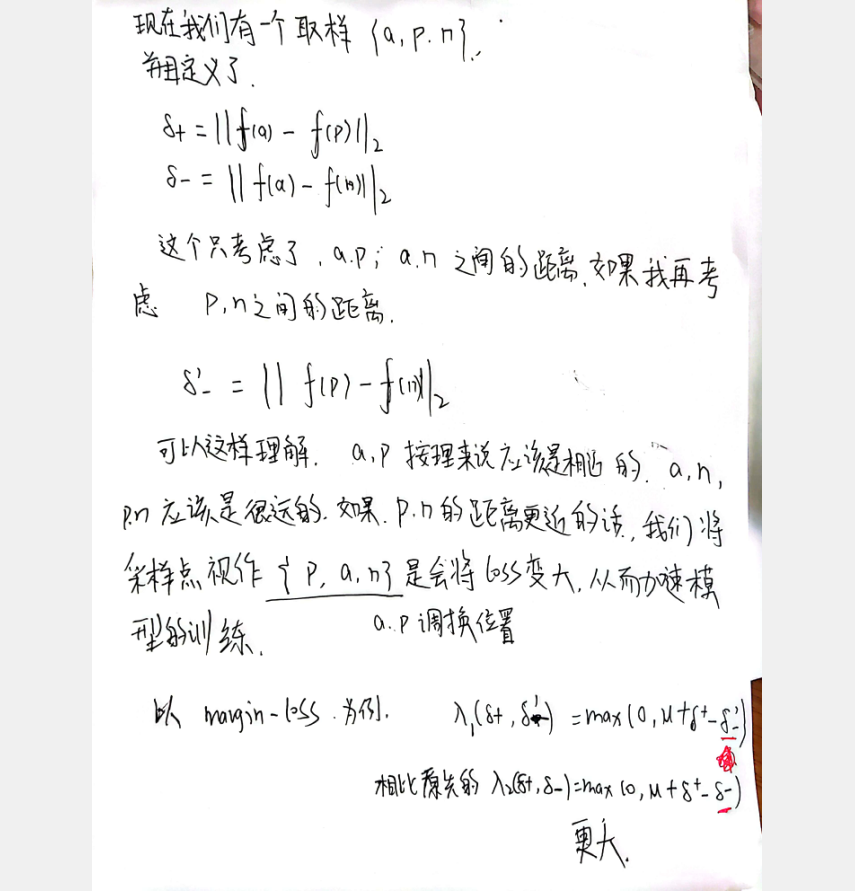 现在我们有一个取样 {a, p. n}.
并且定义了.
δ+ = ||f(a) - f(p)||₂
δ- = ||f(a) - f(n)||₂
这个只考虑了, a.p; a.n 之间的距离. 如果我再考
虑 p,n之间的距离.
δ'- = || f(p) - f(n)||₂
可以这样理解. a,p 按理来说应该是相近的. a,n,
p.n 应该是很远的. 如果. p.n的距离更近的话, 我们将
采样点视作 { p, a, n} 是会将 loss 变大, 从而加速模
型的训练. a.p 调换位置
以 margin-loss 为例. λ₁(δ+, δ'-) = max(0, μ+δ⁺-δ'-)
相比原先的 λ₂(δ+, δ-)=max(0, μ+δ⁺-δ-)
更大.